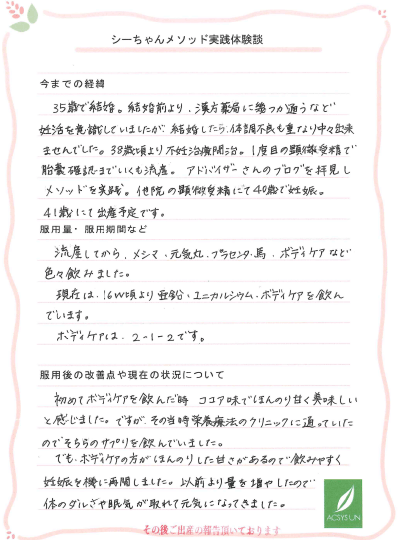 シーちゃんメソッド実践体験談
今までの経緯
35歳で結婚。結婚前より、漢方薬局に幾つか通うなど
妊活を意識していましたが、結婚したら、体調不良も重なり中々出来
ませんでした。38歳頃より不妊治療開始。1度目の顕微受精で
胎嚢確認までいくも流産。アドバイザーさんのブログを拝見し
メソッドを実践。他院の顕微受精にて40歳で妊娠。
41歳にて出産予定です。
服用量・服用期間など
流産してから、メシマ、元気丸、プラセンタ・馬、ボディケアなど
色々飲みました。
現在は、16w頃より亜鉛、ユニカルシウム、ボディケアを飲ん
でいます。
ボディケアは、2-1-2です。
服用後の改善点や現在の状況について
初めてボディケアを飲んだ時、ココア味でほんのり甘く美味しい
と感じました。ですが、その当時栄養療法のクリニックに通っていた
のでそちらのサプリを飲んでいました。
でも、ボディケアの方がほんのりした甘さがあるので飲みやすく
妊娠を機に再開しました。以前より量を増やしたので
体のダルさや眠気が取れて元気になってきました。
ACSYSUN
その後ご出産の報告頂いております